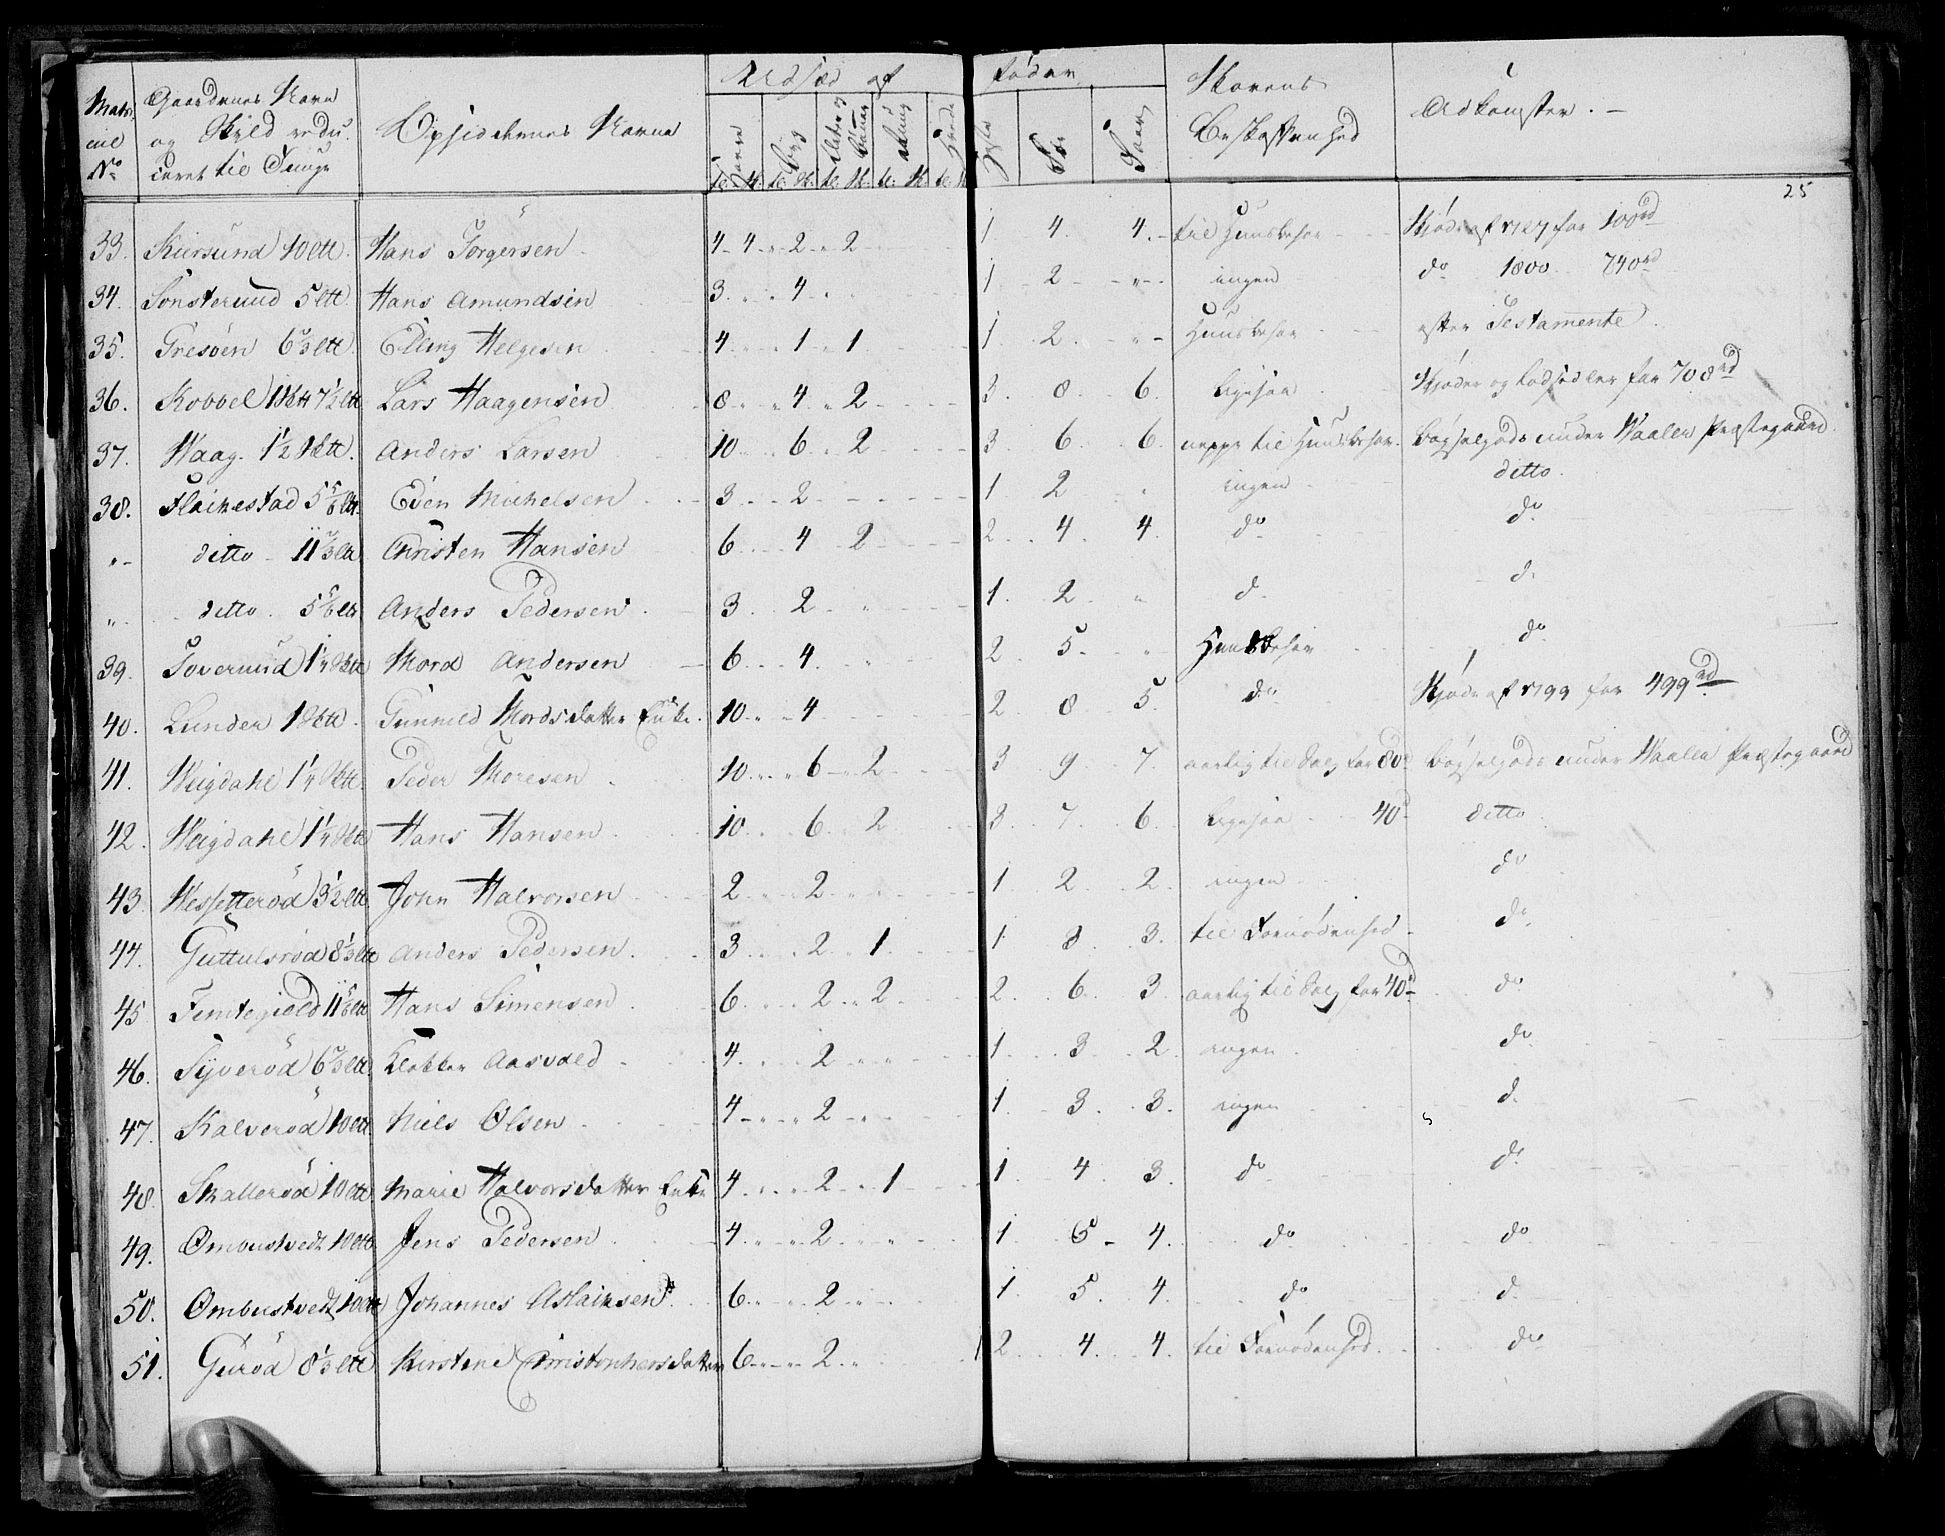 25
Matri cul No | Gaardenes Navn og Skyld redu- ceret til Tunge | Opsiddernes Navne | Udsæd af | føder | Skovens Beskaffenhed | Adkomster. –
Havre | Byg | Erter Bønner | Rug | Hvede | Heste | Kør | Faar
33. | Kiersund 10 ltt. | Hans Jørgersen | 4 – 4 „ 2 „ 2 | 1 | 4 | 4. | til Huusbehov | Skjøde af 1787 for 100 rd
34. | Sønsterud 5 ltt. | Hans Amundsen | 3. „ „ 4 „ | 1 | 2 | „ | ingen | do 1800 740 rd
35. | Gresøen 6 2/3 ltt | Elling Helgesen | 4 „ „ 1 „ 1 | 1 | 2. | „ | Huusbehov | efter Testamente.
36. | Kobbel 1 Sktt 7 1/2 ltt | Lars Haagensen | 8 „ „ 4 „ 2 | 3. | 8 | 6. | Ligesaa | Skjøder og Lodsedler for 708 rd
37. | Waag. 1 1/2 Sktt. | Anders Larsen | 10 „ 6 „ 2 | 3 | 6 | 6. | neppe til Huusbehov. | Bøgselgods under Waaler Præstegaard.
38. | Flakestad 5 5/6 ltt. | Eden Michelsen | 3 „ 2 | 1 | 2 | „ | ingen | ditto.
„ | ditto 11 2/3 ltt | Christen Hansen | 6 4 2 | 2 | 4 | 4 | do | do
„ | ditto. 5 5/6 ltt | Anders Pedersen | 3. 2 „ | 1. | 2 | „ | do | do
39. | Toverud 1 1/4 Sktt | Mord Andersen | 6 4. | 2 | 5. | „ | Huusbehov | do
40. | Lunder 1 Sktt | Gunnild Mordsdatter Enke. | 10 4 | 2 | 8 | 5. | do | Skjøde af 1799 for 499 rd
41. | Weigdahl 1 1/4 Sktt. | Peder Moresen | 10 „ „ 6 „ 2 | 3 | 9 | 7. | aarlig til Salg for 80 rd | Bøgselgods under Waaler Præstegaard
42. | Weigdahl 1 1/4 Sktt | Hans Hansen | 10 6 2 | 3. | 7. | 6. | Ligesaa 40 d | ditto
43. | Wessetterød 3 1/2 ltt | John Halvorsen | 2 2 | 1 | 2 | 2. | ingen | do
44. | Guttulsrød 8 1/3 ltt | Anders Pedersen | 3 2 1 | 1 | 3. | 3. | til Fornødenhed | do
45. | Femtegield 11 2/3 ltt | Hans Simensen | 6 2 „ 2 | 2 | 6 | 3. | aarlig til Salg for 40 d | do
46. | Syverød 6 2/3 ltt | Klokker Aasvald | 4 2 „ „ | 1 | 3 | 2. | ingen | do
47. | Kalverød 10 ltt | Niels Olsen | 4 – „ „ 2 „ | 1. | 3. | 3. | ingen | do
48. | Skallerød 10 ltt | Marie Halvorsdatter Enke | 4 2 1 | 1 | 4 | 3. | do | do
49. | Ombustvedt 10 ltt | Jens Pedersen | 4 „ „ 2 „ | 1 | 6 – | 4. | do | do
50. | Ombustvedt 10 ltt | Johannes Aslaksen. | 6 „ „ 2 „ | 1 | 5. | 4. | do | do
51. | Gurød 8 1/3 ltt | Kirstene Christophersdatter | 6 „ „ 2 „ | 2 | 4 | 4. | til Fornødenhed. | do